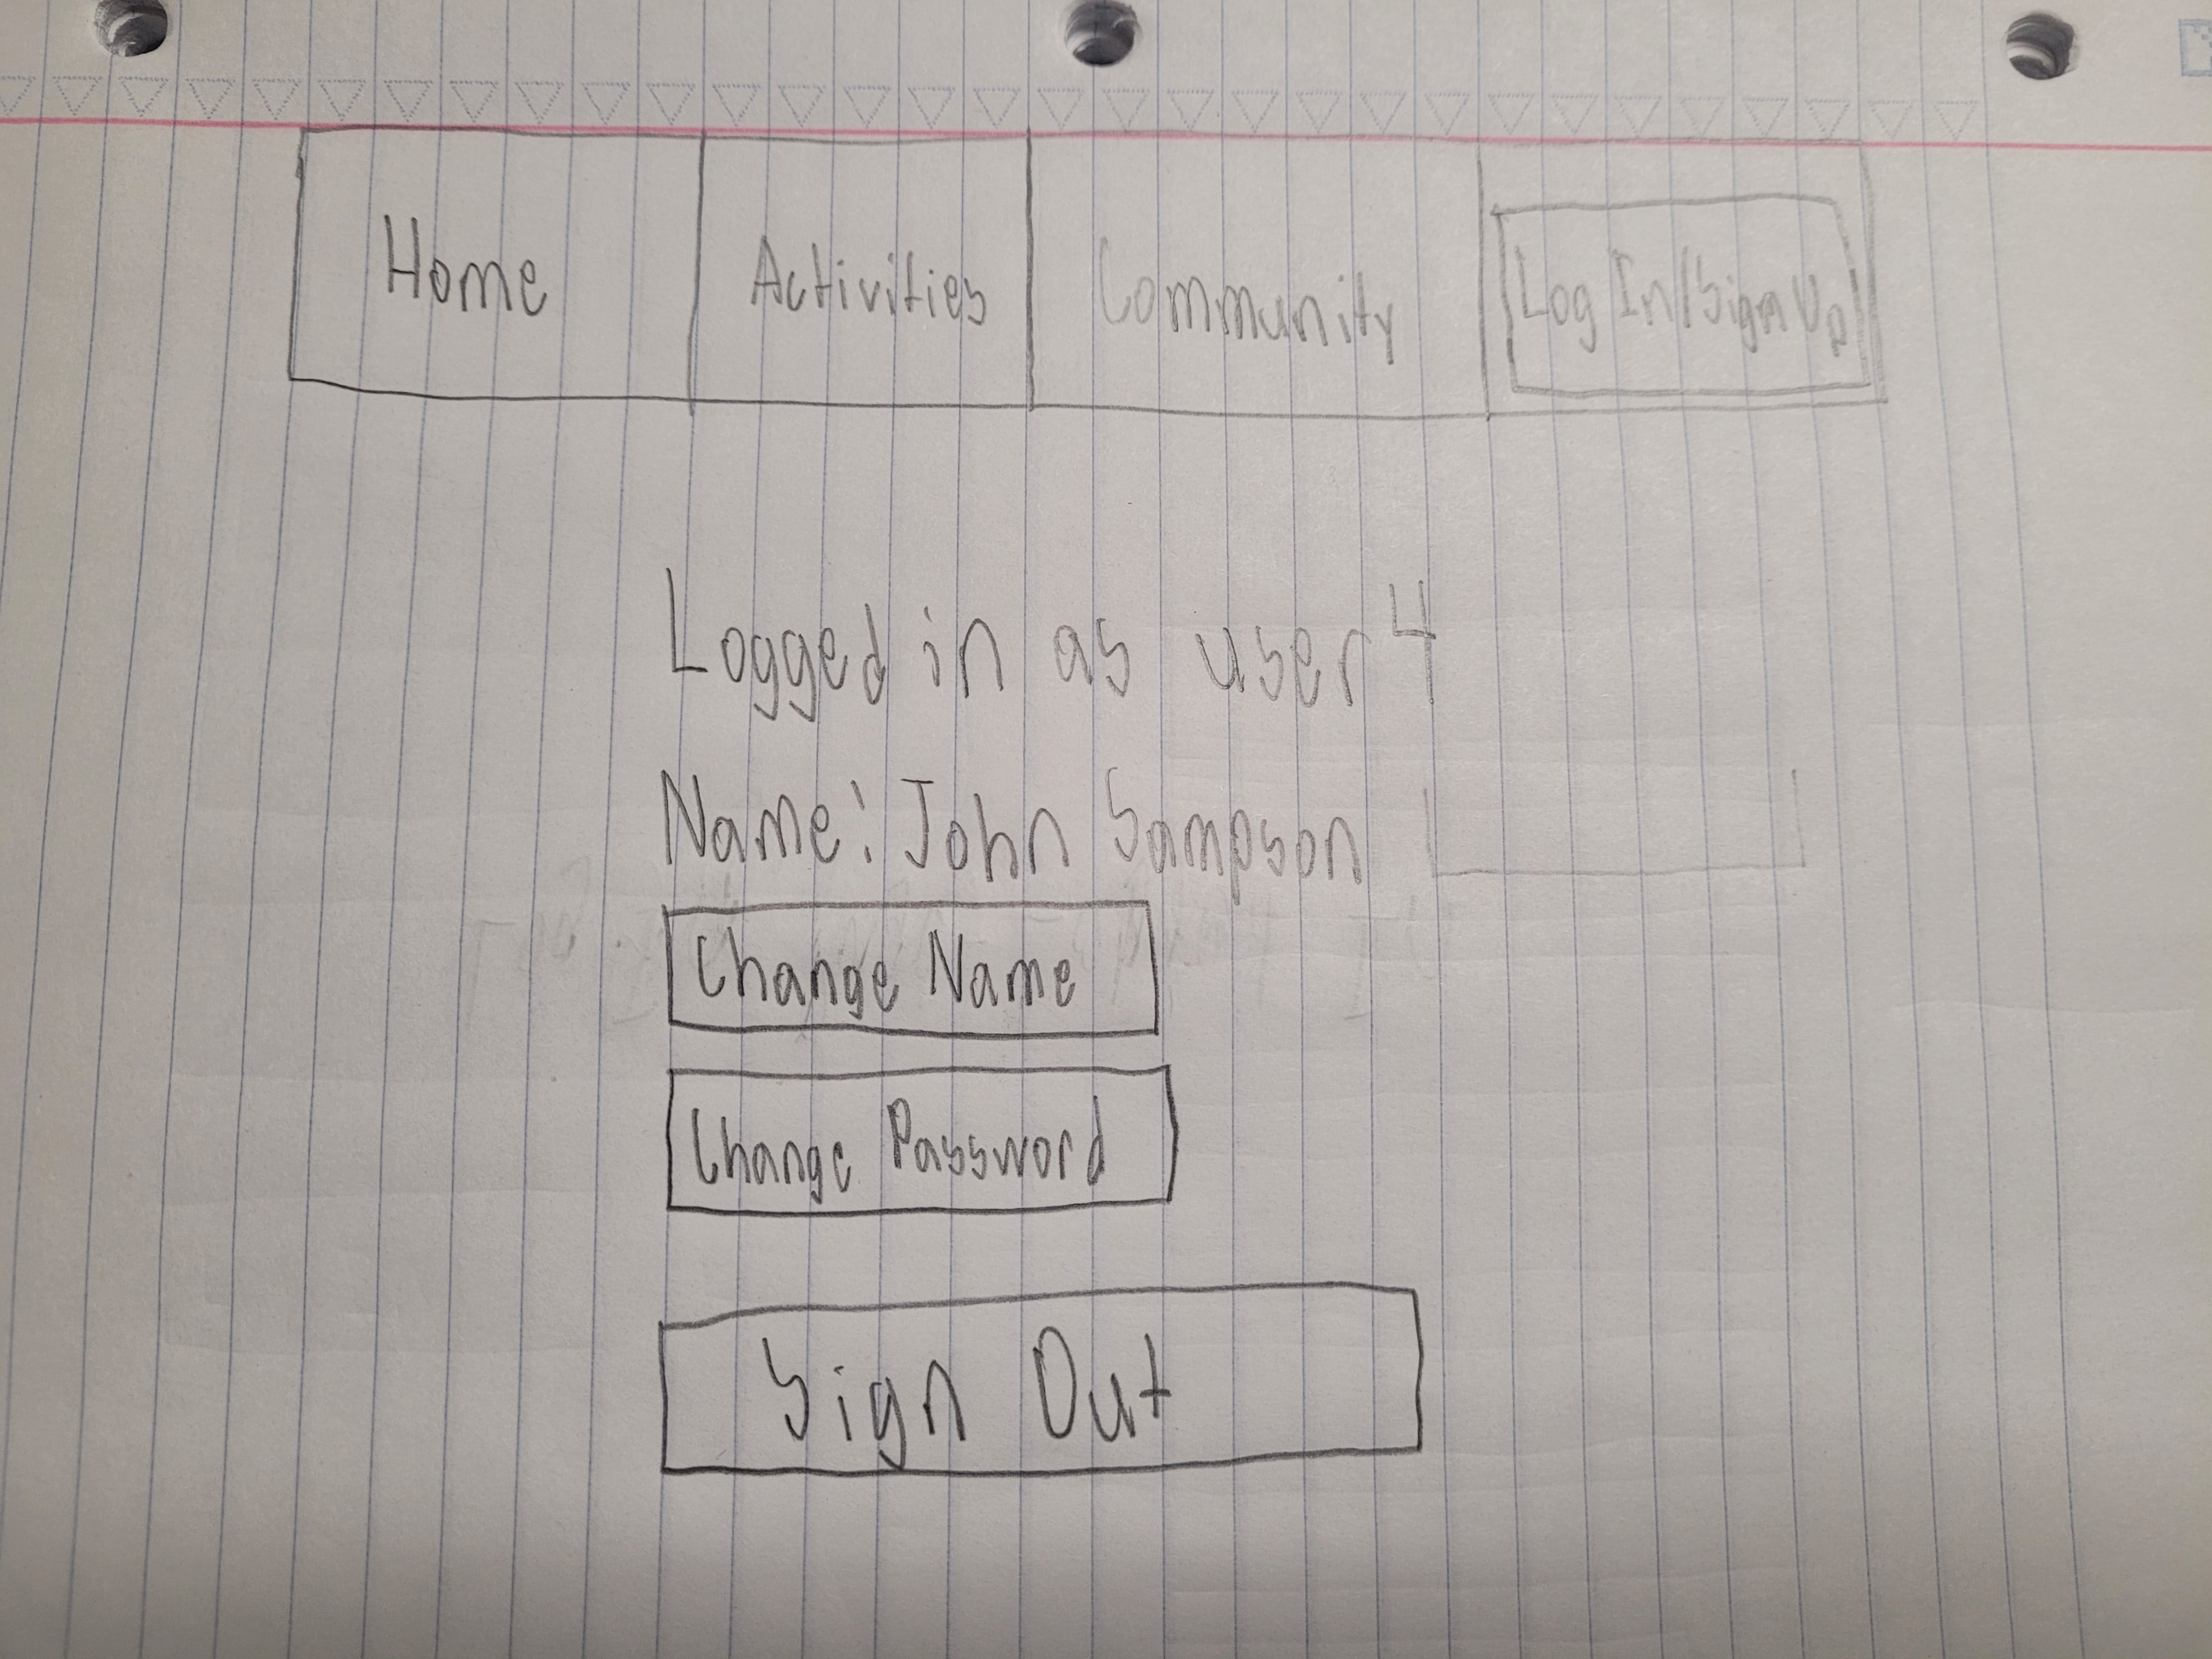 Home Activities Community Log In/Sign Up
Logged in as user4
Name: John Sampson
Change Name
Change Password
Sign Out